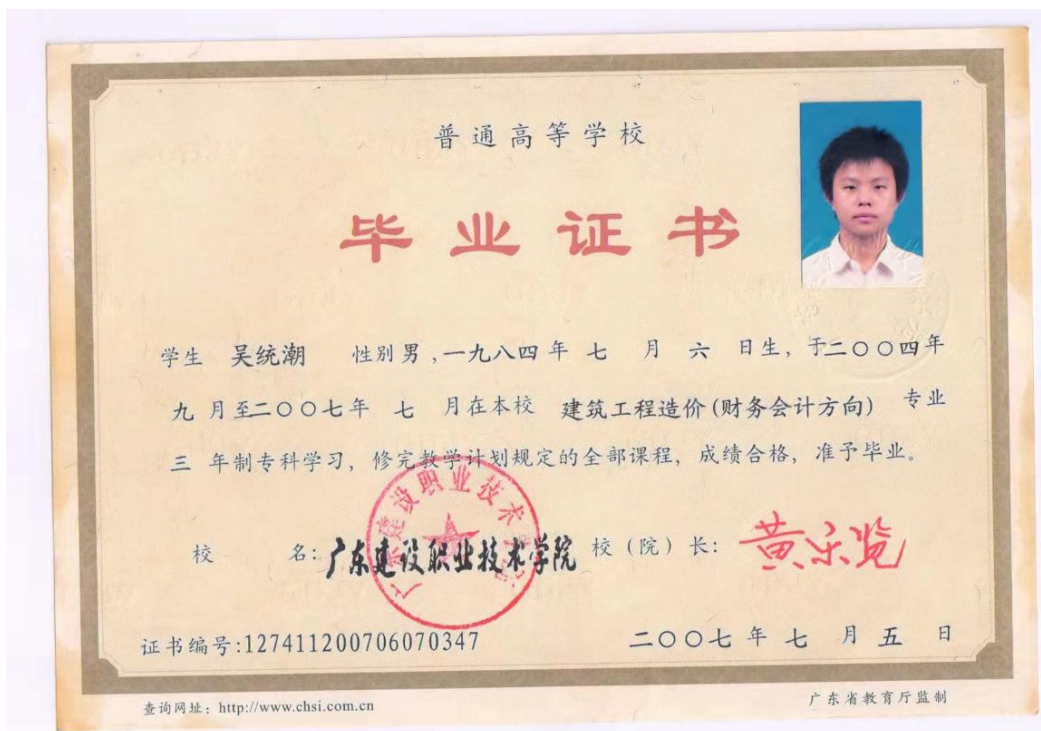 普通高等学校
毕业证书
学生 吴统潮 性别 男 ,一九八四 年 七 月 六 日生, 于二〇〇四年
九 月至二〇〇七年 七 月在本校 建筑工程造价(财务会计方向) 专业
三 年制专科学习, 修完教学计划规定的全部课程, 成绩合格, 准予毕业。
校 名: 广东建设职业技术学院 校(院)长: 黄乐览
广东建设职业技术学院
证书编号:127411200706070347 二〇〇七 年 七 月 五 日
查询网址: http://www.chsi.com.cn 广东省教育厅监制